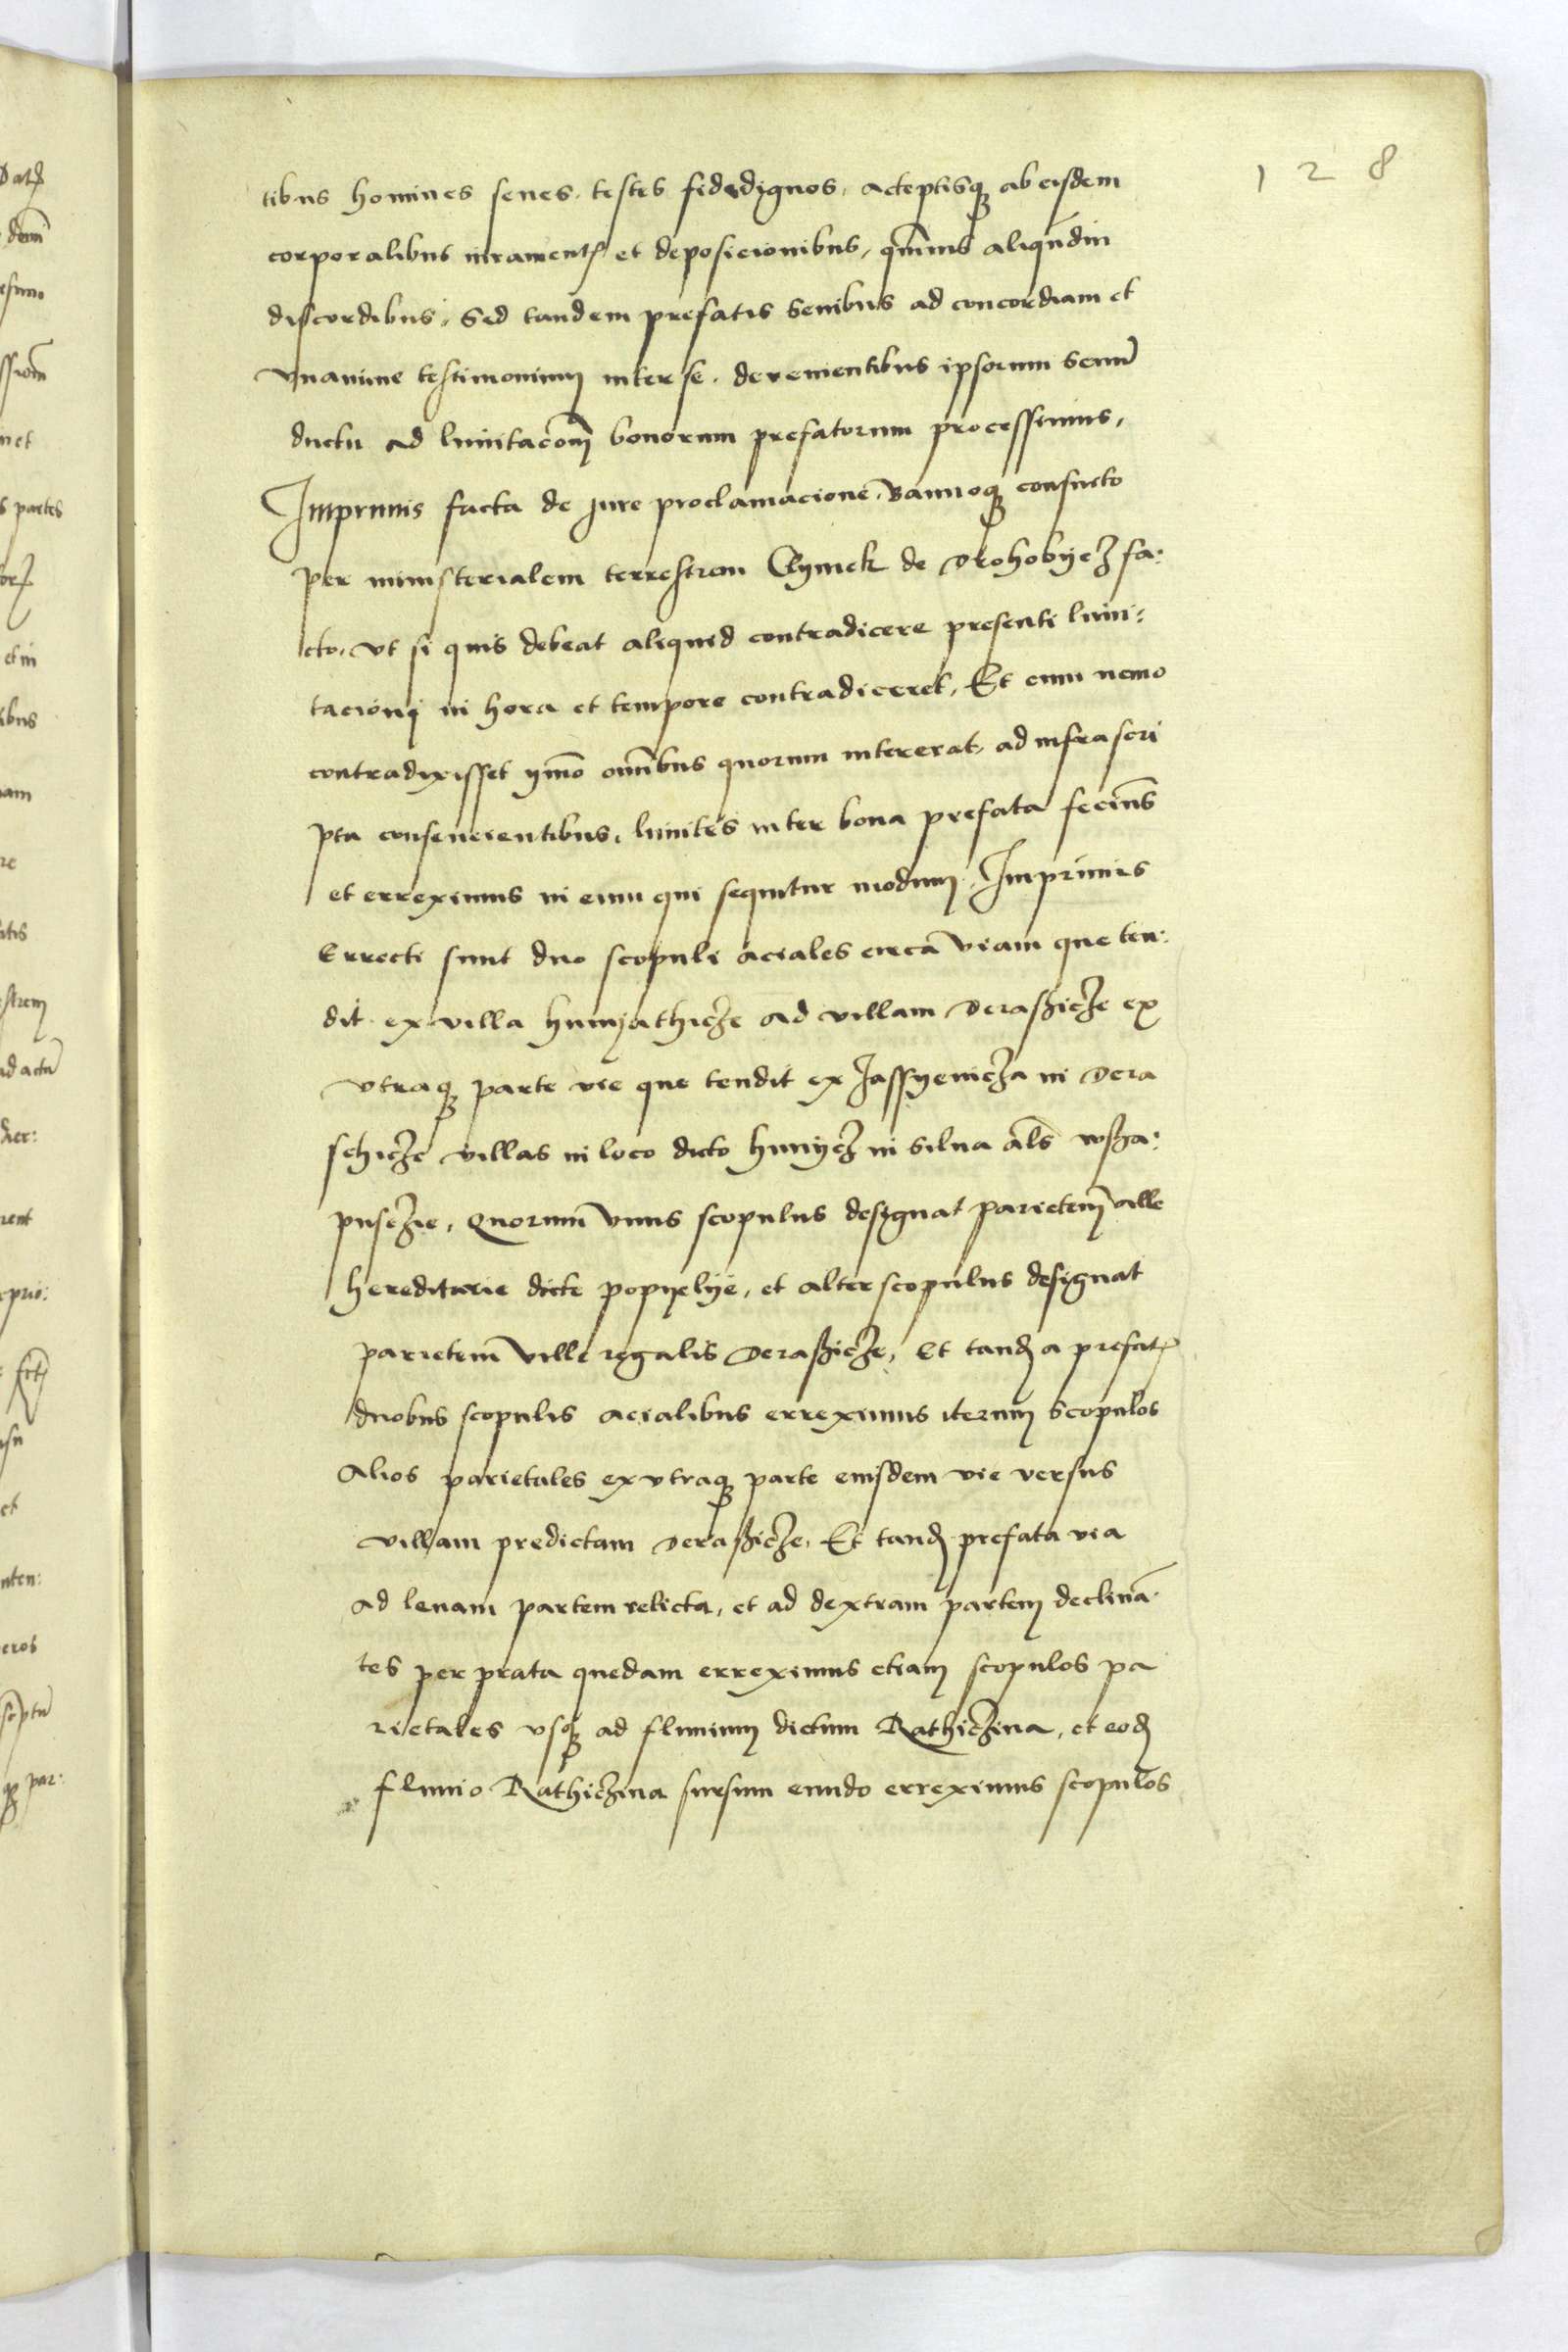 128
tibus homines senes testes fidedignos, acceptisq3 ab eisdem
corporalibus iurament et deposicionibus, qmuis aliqūdiu
discordibus, Sed tandem prefatis Senibus ad concordiam et
vnanime testimonium inter se devenientibus ipsorum Senū
ductu ad limitacōm bonorum prefatorum processimus,
Imprimis facta de jure proclamacione, Bannoq3 consueto
per ministerialem terrestrem Clymek de Drohobijcz fa:
cto, vt si quis debeat aliquid contradicere presenti limi:
tacioni in hora et tempore contradiceret, Et cum nemo
contradixisset ymo omībus quorum intererat, ad infrascri
pta consencientibus, limites inter bona prefata fecims
et erreximus in eum qui sequitur modum, Imprimis
Errecti sunt duo scopuli aciales circa viam que ten:
dit ex villa humjathicze ad villam Deraszicze ex
vtraq3 parte vie que tendit ex Jassyenicza in Dera
schicze villas in loco dicto hunijcz in silua als wsza:
pusczie, Quorum vnus scopulus designat parietem ville
hereditarie dicte popyelije, et alter scopulus designat
parietem ville regalis Deraszicze, Et tand a prefat
duobus scopulis acialibus erreximus iterum Scopulos
Alios parietales ex vtraq3 parte eiusdem vie versus
villam predictam Deraszicze, Et tand prefata via
ad leuam partem relicta, et ad dextram partem declinā
tes per prata quedam erreximus etiam scopulos pa
rietales vsq3 ad fluuium dictum Rathiczina, et eod
fluuio Rathiczina sursum eundo erreximus scopulos